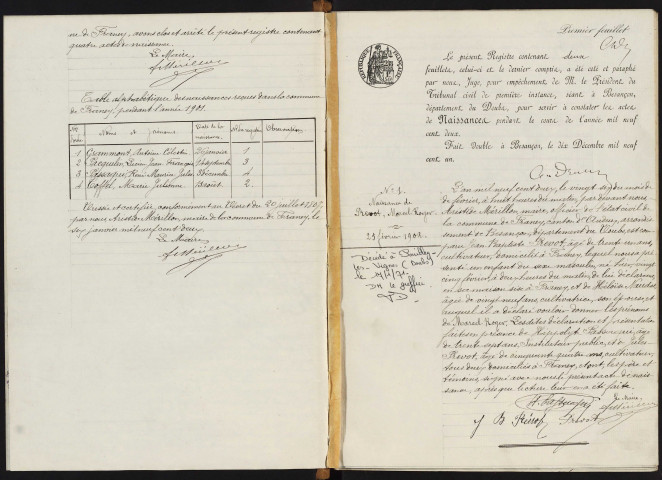 ne de Franey, avons clos et arrêté le présent registre contenant
quatre actes naissance.
Le Maire,
Table alphabétique des naissances reçues dans la commune
de Franey, pendant l'année 1901.
Noms et prénoms
Date de la naissance
Nos des actes
Observations
1 Grammont, Antoine Céleste 1
2 Jacquelin, Léon Jean François 3
3 René Maurice Jules 4
4 Marie Julienne Août 2
Dressé et certifié conformément au Décret du 20 juillet 1807,
par nous Aristide Mérillon, maire de la commune de Franey, le
six janvier mil neuf cent deux.
Le Maire
Premier feuillet
RÉPUBLIQUE FRANÇAISE
Le présent Registre contenant deux
feuillets, celui-ci et le dernier compris, a été coté et paraphé
par nous, Juge, pour empêchement de M. le Président du
Tribunal civil de première instance, séant à Besançon,
département du Doubs, pour servir à constater les actes
de Naissances pendant le cours de l'année mil neuf
cent deux.
Fait double à Besançon, le dix Décembre mil neuf
cent un.
N° 1.
Naissance de
Prevot, Marcel Roger.
21 février 1902.
Décédé à Pouilley
les Vignes (Doubs)
le
le greffier
L'an mil neuf cent deux, le vingt deux du mois de
février, à huit heures du matin, par devant nous
Aristide Mérillon, maire, officier de l'état civil de
la commune de Franey, canton d'Audeux, arrondis
sement de Besançon, département du Doubs, est com
paru Jean Baptiste Prevot, âgé de trente un ans,
cultivateur, domicilié à Franey, lequel nous a pré
senté un enfant du sexe masculin, né hier vingt
un février, à deux heures du matin, de lui déclarant,
en sa maison sise à Franey, et de Héloïse
âgée de vingt neuf ans, cultivatrice, son épouse, et
auquel il a déclaré vouloir donner les prénoms
de Marcel Roger. Lesdites déclaration et présentation
faites en présence de Hippolyte âgé
de trente sept ans, instituteur public, et de Jules
Prevot, âgé de cinquante quatre ans, cultivateur,
tous deux domiciliés à Franey, et ont, les père et
témoins, signé avec nous le présent acte de nais
sance, après que lecture leur en a été faite.
Le Maire,
J B Prévot Prevot